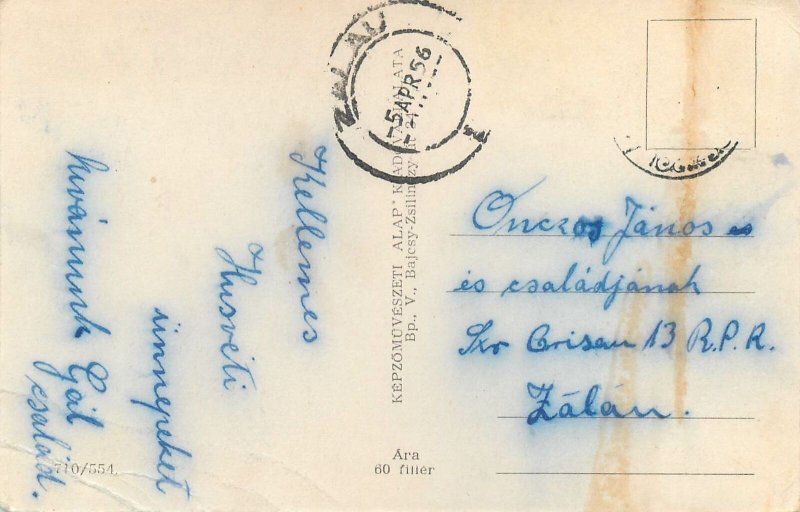 Kellemes
Husvéti
ünnepeket
kivánunk Gál
család.
710/554.
KÉPZŐMŰVÉSZETI ALAP KIADÓVÁLLALATA
Bp., V., Bajcsy-Zsilinszky út
Ára
60 fillér
ZALĂU
5 APR 56
Onczos János
és családjának
Str Crisan 13 R.P.R.
Zálán.